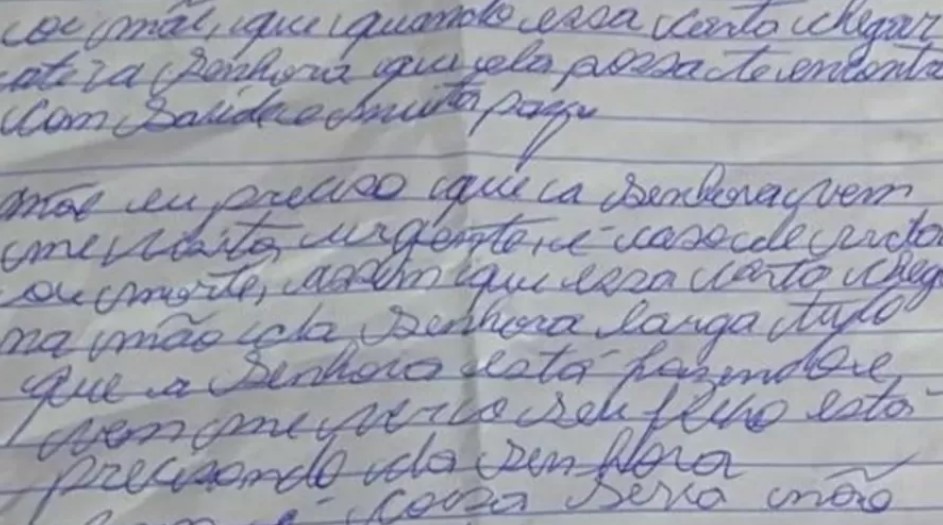 oi mãe, que quando essa carta chegar
ate a Senhora que ela possa te encontra
com Saude e muita paz
mãe eu preciso que a Senhora vem
me visita urgente, é caso de vida
ou morte, assim que essa carta chega
na mão da Senhora larga tudo
que a Senhora está fazendo e
vem me ver o seu filho está
precisando da Senhora
é coisa seria mão